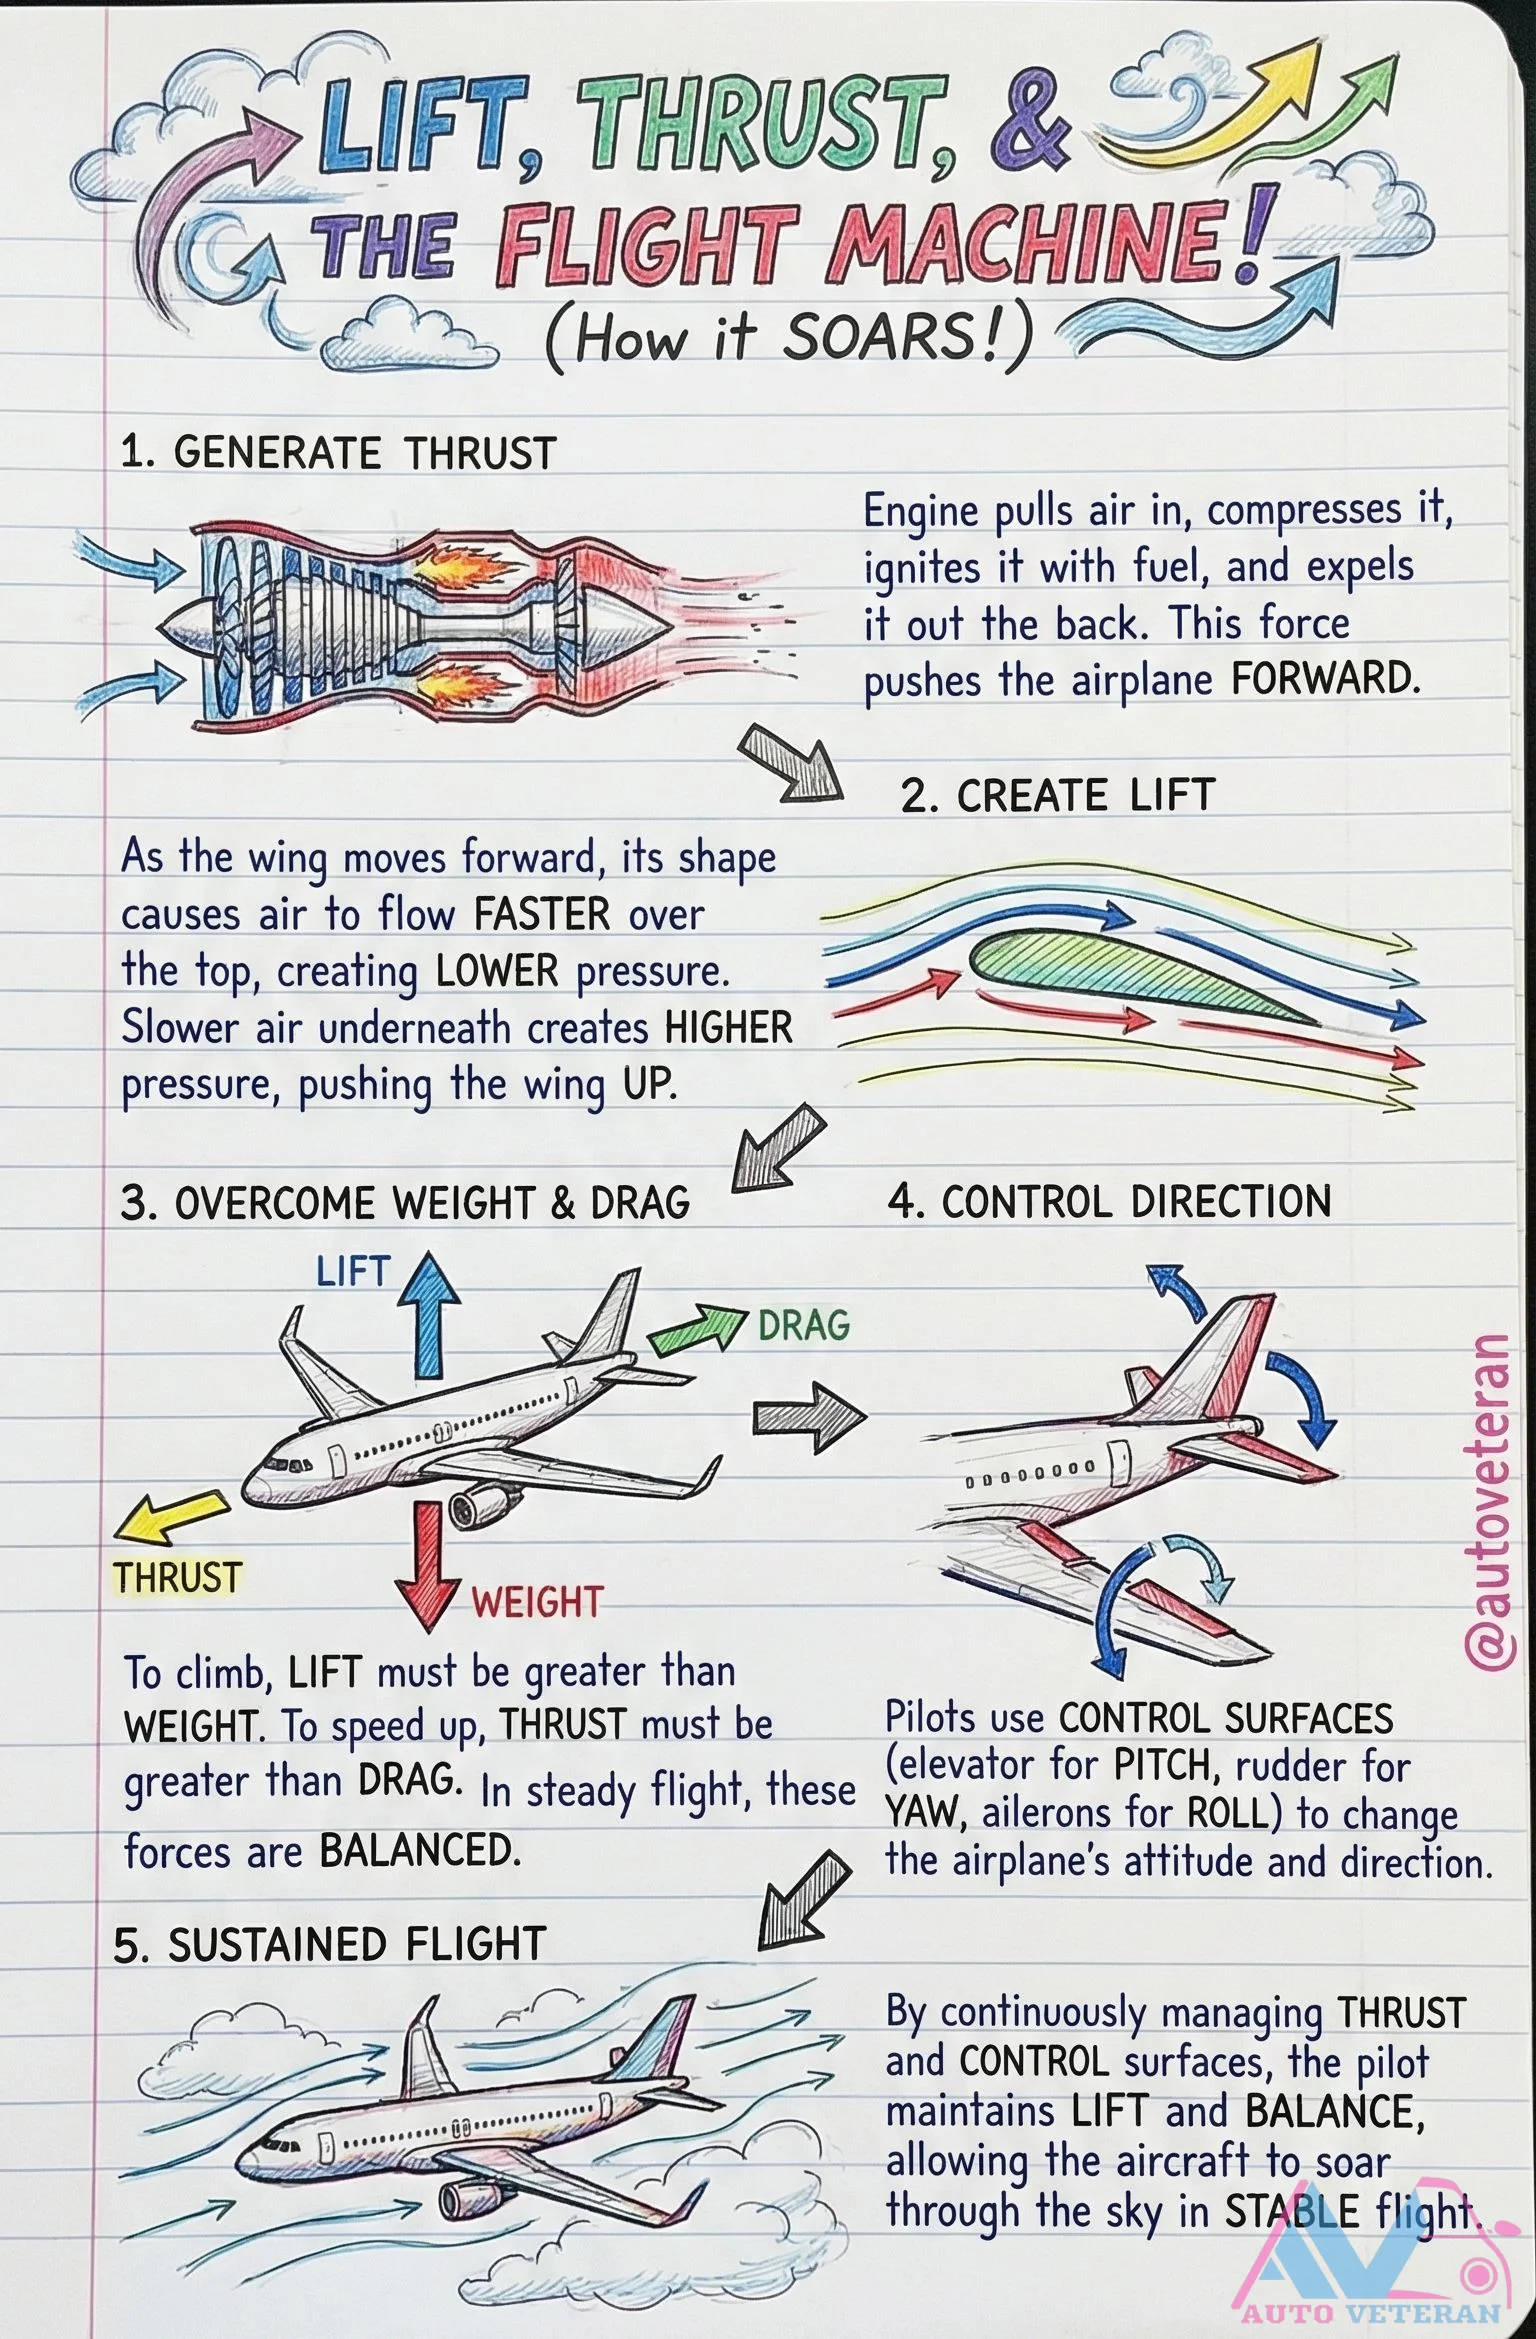 LIFT, THRUST, &
THE FLIGHT MACHINE!
(How it SOARS!)
1. GENERATE THRUST
Engine pulls air in, compresses it,
ignites it with fuel, and expels
it out the back. This force
pushes the airplane FORWARD.
2. CREATE LIFT
As the wing moves forward, its shape
causes air to flow FASTER over
the top, creating LOWER pressure.
Slower air underneath creates HIGHER
pressure, pushing the wing UP.
3. OVERCOME WEIGHT & DRAG
LIFT
DRAG
THRUST
WEIGHT
To climb, LIFT must be greater than
WEIGHT. To speed up, THRUST must be
greater than DRAG. In steady flight, these
forces are BALANCED.
4. CONTROL DIRECTION
Pilots use CONTROL SURFACES
(elevator for PITCH, rudder for
YAW, ailerons for ROLL) to change
the airplane's attitude and direction.
@autoveteran
5. SUSTAINED FLIGHT
By continuously managing THRUST
and CONTROL surfaces, the pilot
maintains LIFT and BALANCE,
allowing the aircraft to soar
through the sky in STABLE flight.
AV
AUTO VETERAN